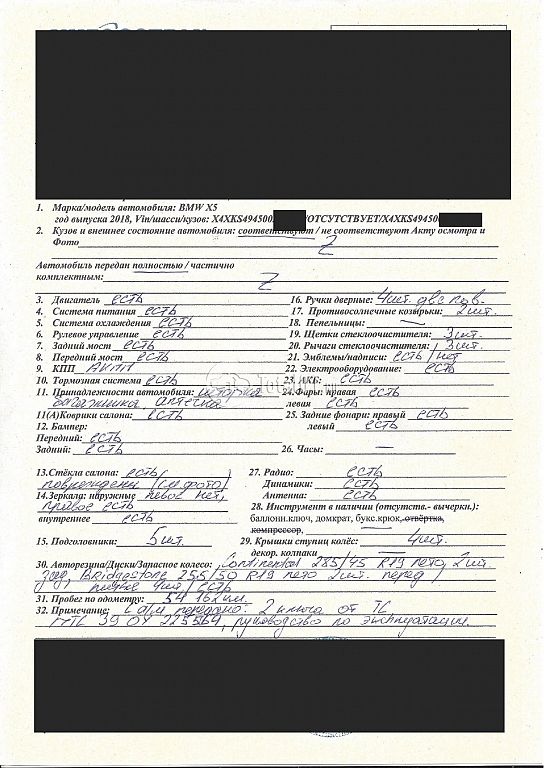 1. Марка/модель автомобиля: BMW X5
год выпуска 2018, Vin/шасси/кузов: X4XKS494500 /ОТСУТСТВУЕТ/X4XKS49450
2. Кузов и внешнее состояние автомобиля: соответствуют / не соответствуют Акту осмотра и
Фото Z
Автомобиль передан полностью / частично
комплектным: Z
3. Двигатель есть
4. Система питания есть
5. Система охлаждения есть
6. Рулевое управление есть
7. Задний мост есть
8. Передний мост есть
9. КПП АКПП
10. Тормозная система есть
11. Принадлежности автомобиля: шторка
багажника, аптечка
11(А)Коврики салона: есть
12. Бампер:
Передний: есть
Задний: есть
16. Ручки дверные: 4шт.
17. Противосолнечные козырьки: 2шт.
18. Пепельницы: —
19. Щетки стеклоочистителя: 3шт.
20. Рычаги стеклоочистителя: 3шт.
21. Эмблемы/надписи: есть/нет
22. Электрооборудование: есть
23. АКБ: есть
24. Фары: правая есть
левая есть
25. Задние фонари: правый есть
левый есть
26. Часы: —
13.Стёкла салона: есть
повреждены (см фото)
14.Зеркала: наружные левое нет,
правое есть
внутреннее есть
15. Подголовники: 5шт.
27. Радио: есть
Динамики: есть
Антенна: есть
28. Инструмент в наличии (отсутств.- вычерки.):
баллонн.ключ, домкрат, букс.крюк, отвёртка,
компрессор,
29. Крышки ступиц колёс: 4шт.
декор. колпаки
30. Авторезина/Диски/Запасное колесо: Continental 285/45 R19 лето, 2шт.
зад, Bridgestone 255/50 R19 лето 2шт. перед/
4шт/ есть
31. Пробег по одометру: 54 162км.
32. Примечание: с а/м передано: 2 ключа от ТС
ПТС 39 ОУ 225564, руководство по эксплуатации.